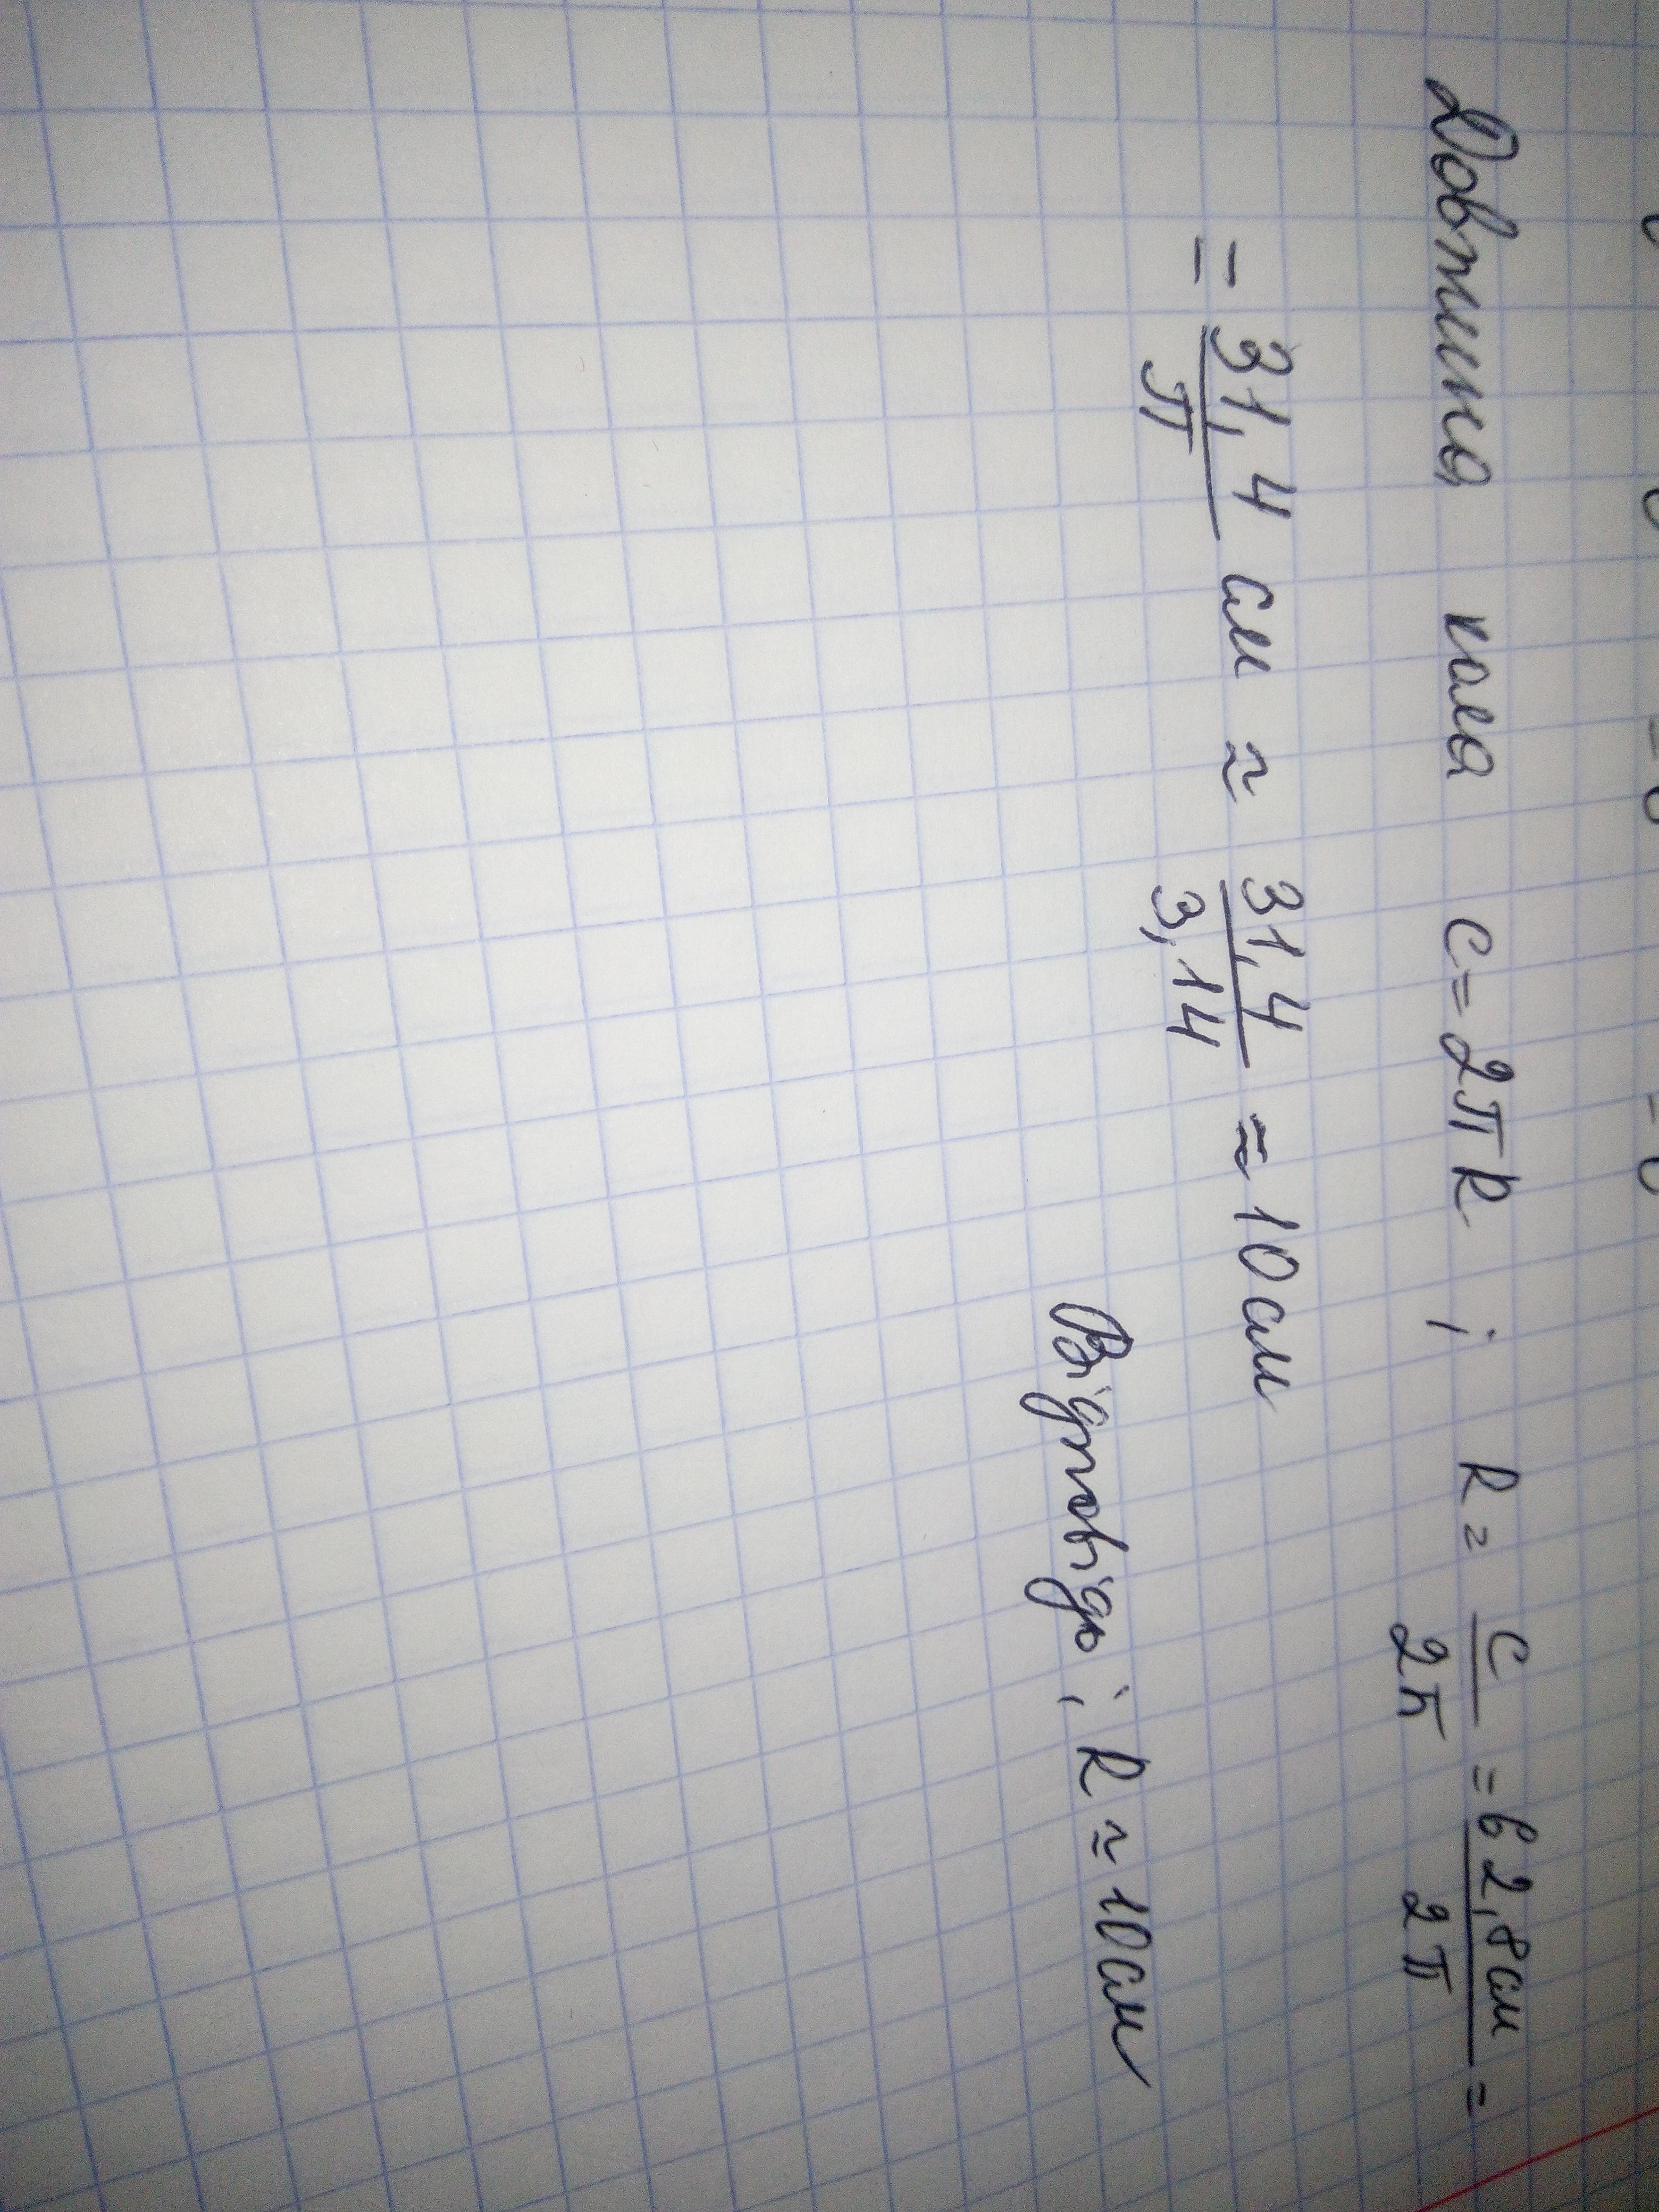 Довжина кола C=2πR ; R = C/2π = 62,8см/2π =
= 31,4/π см ≈ 31,4/3,14 ≈ 10см
Відповідь; R ≈ 10см